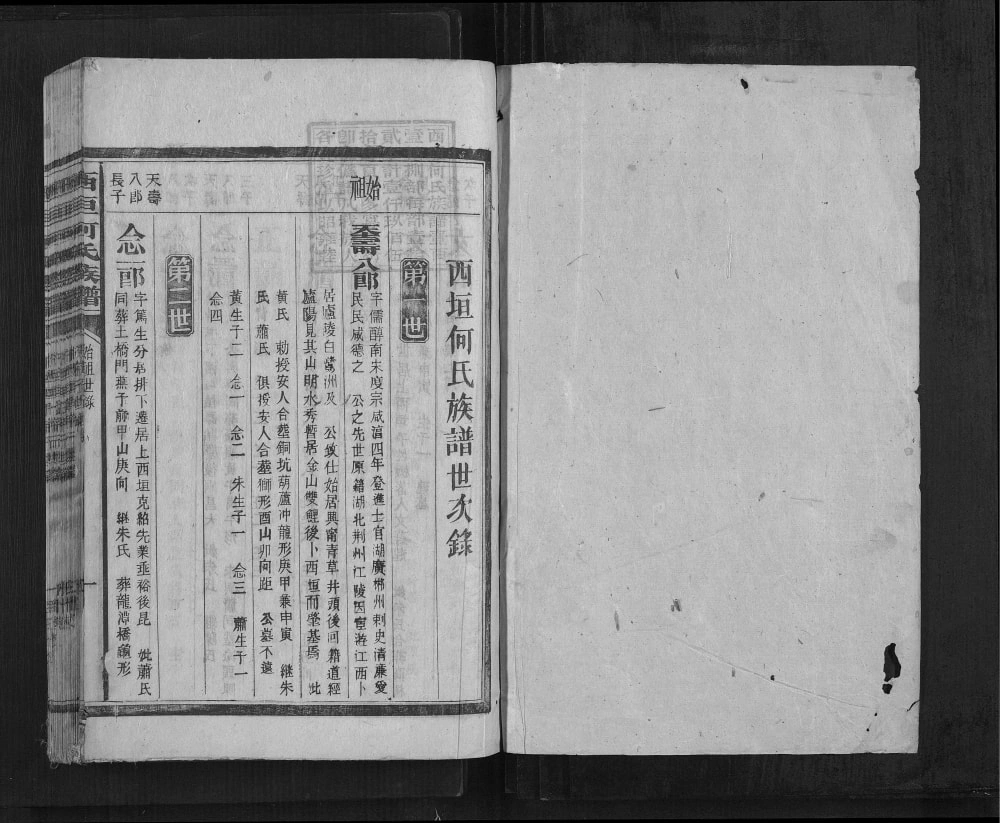 西垣何氏族譜世次錄
第一世
始祖
天壽八郎
字儒醇南宋度宗咸淳四年登進士官湖廣郴州刺史清廉愛
民民咸德之 公之先世原籍湖北荆州江陵因宦遊江西卜
居廬陵白鷺洲及 公致仕始居興甯青草井頭後河籍道經
廬陽見其山明水秀暫居金山雙鯉後卜西垣而肇基焉 妣
黃氏 勅授安人合塟銅坑葫蘆冲龍形庚甲兼申寅 継朱
氏 蕭氏 俱授安人合塟獅形酉山卯向距 公墓不遠
黃生子二 念一 念二 朱生子一 念三 蕭生子一
念四
第二世
天壽
八郎
長子
念一郎
字篤生分居排下遷居上西垣克紹先業垂裕後昆 妣蕭氏
同葬土橋門燕子前甲山庚向 継朱氏 葬龍潭橋龜形
西垣何氏族譜
始祖世錄
一